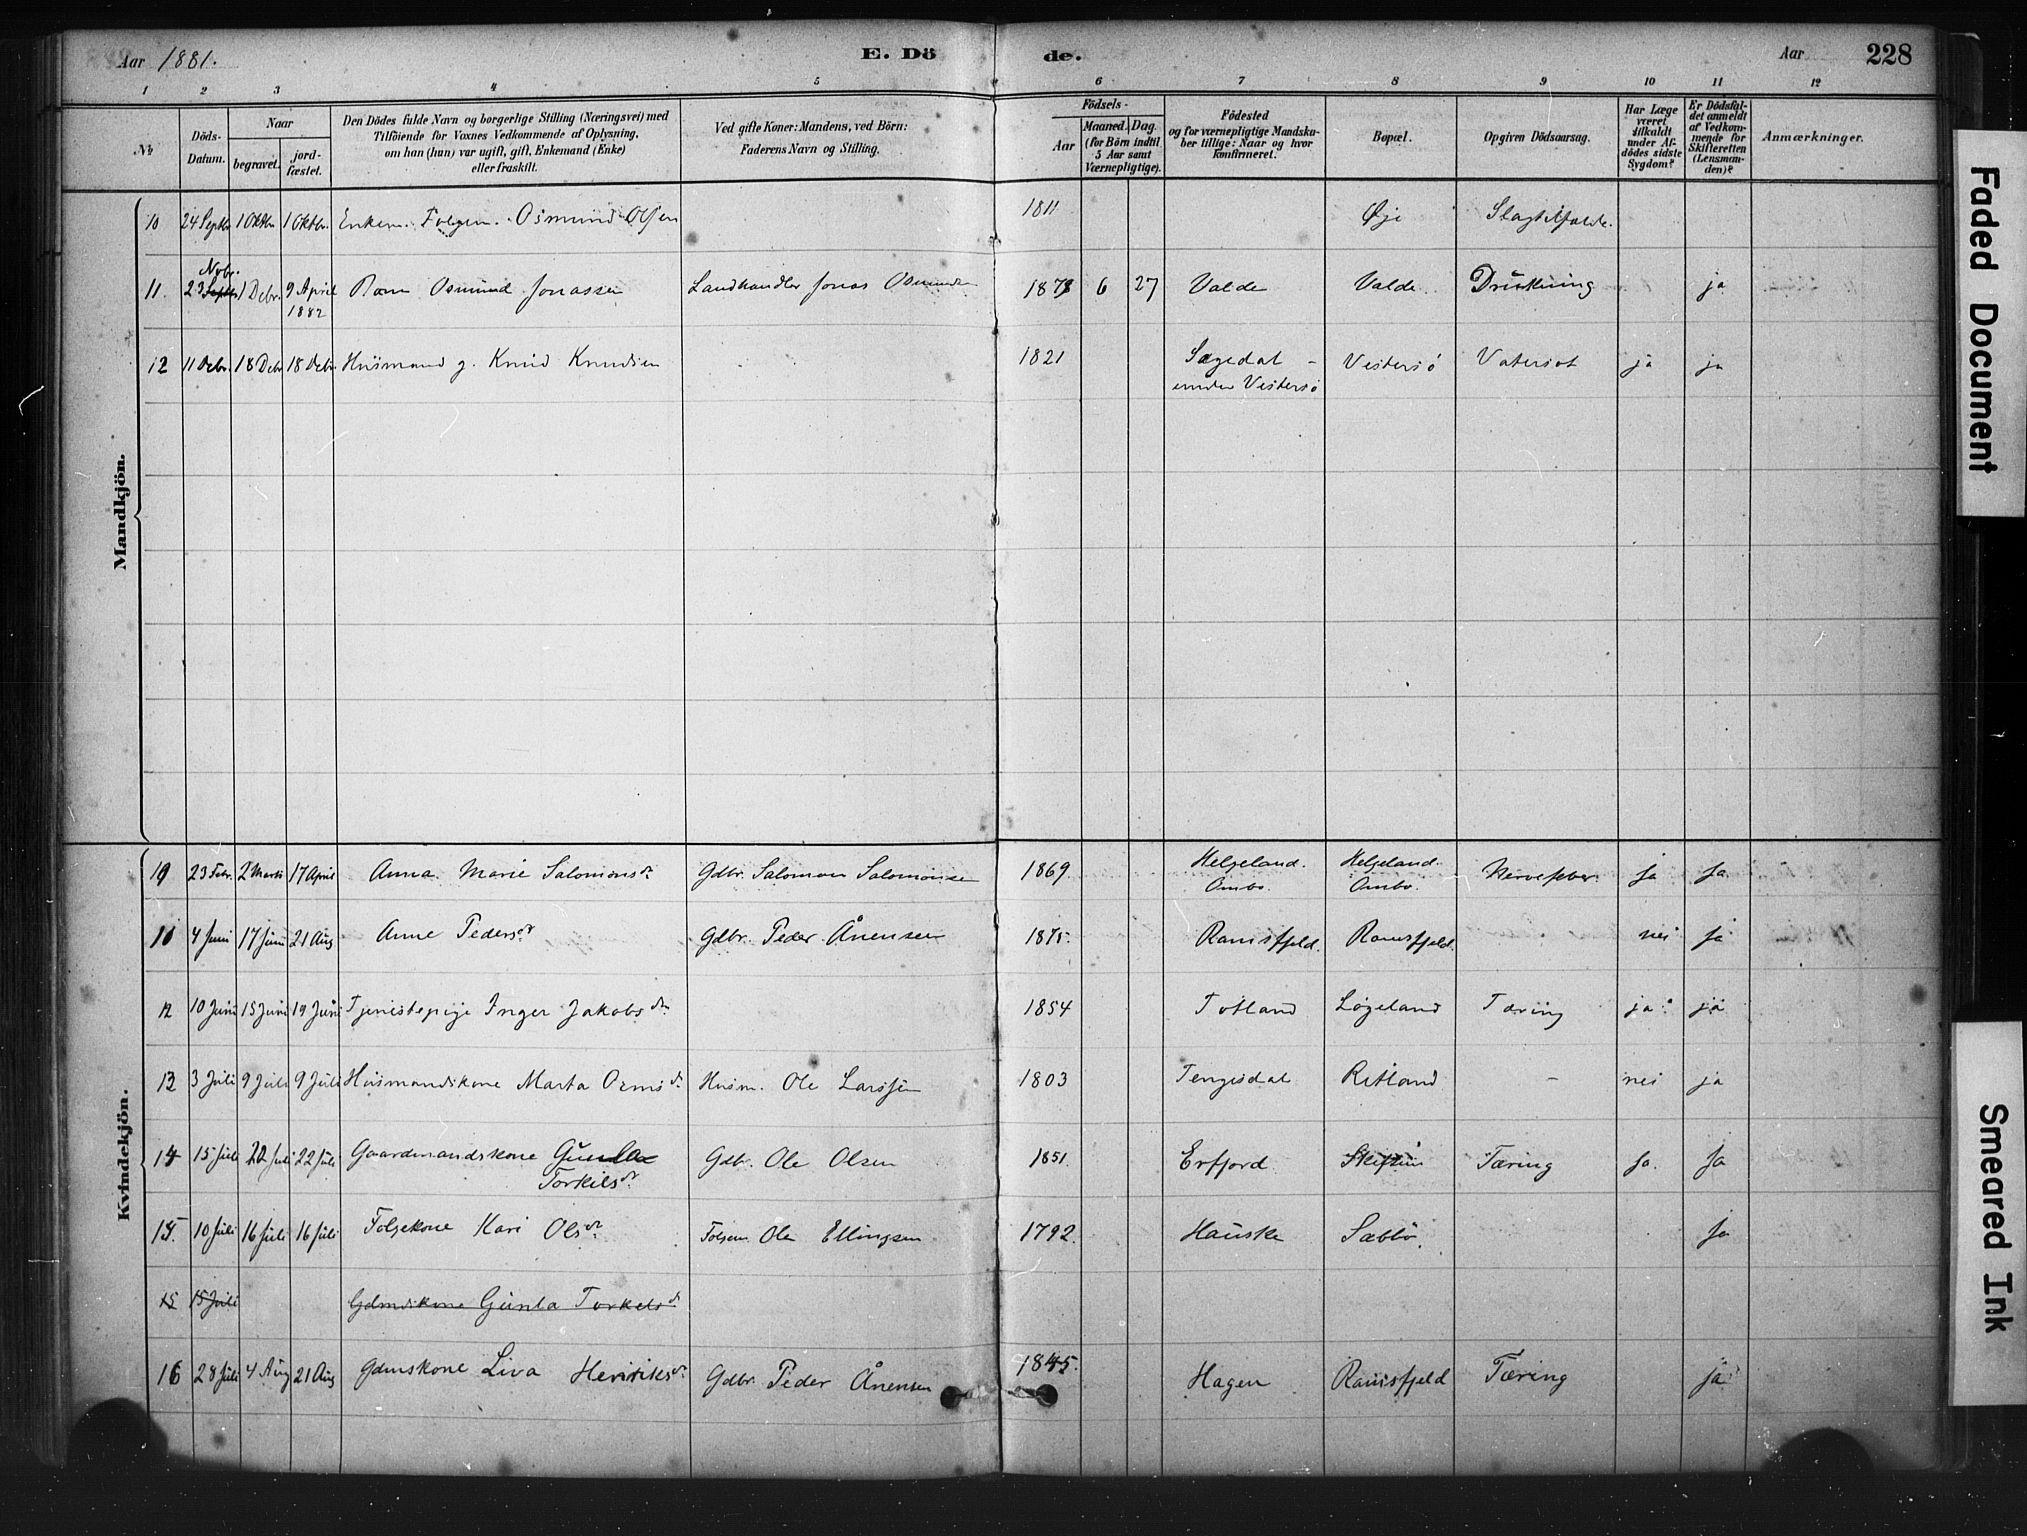 Aar 1881.
E. Dö
de.
Aar
228
1 2 3 4 5 6 7 8 9 10 11 12
№
Döds-
Datum.
Naar
begravet.
jord-
fæstet.
Den Dödes fulde Navn og borgerlige Stilling (Næringsvei) med
Tilföiende for Voxnes Vedkommende af Oplysning,
om han (hun) var ugift, gift, Enkemand (Enke)
eller fraskilt.
Ved gifte Koner: Mandens, ved Börn:
Faderens Navn og Stilling.
Födsels-
Aar
Maaned. Dag.
(for Börn indtil
5 Aar samt
Værnepligtige).
Födested
og for værnepligtige Mandska-
ber tillige: Naar og hvor
konfirmeret.
Bopæl.
Opgiven Dödsaarsag.
Har Læge
været
tilkaldt
under Af-
dödes sidste
Sygdom?
Er Dödsfal-
det anmeldt
af Vedkom-
mende for
Skifteretten
(Lensman-
den)?
Anmærkninger.
Mandkjön.
10 24 Septbr 1 Oktbr 1 Oktbr. Enkem. Folgem. Osmund Olsen 1811 Øje Slagtilfælde.
Nvbr.
11. 23 Septbr 1 Debr. 9 April Barn Osmund Jonassen Landhandler Jonas Osmundsen 1873 6 27 Valde Valde. Drukning ja
1882
12 11 Debr. 18 Debr 18 Debr. Husmand g. Knud Knudsen 1821 Sagedal - Vestersö Vatersot ja ja
under Vestersö
Kvindekjön.
10 23 Febr. 2 Marts 17 April Anna Marie Salomonsdr Gdbr. Salomon Salomonsen 1869 Helgeland. Helgeland. Nervefeber ja Ja
Ombo. Ombo.
11 4 Juni 17 Juni 21 Aug Anne Pedersdr Gdbr. Peder Ånensen 1875. Ramsfjeld. Ramsfjeld. nei Ja
12 10 Juni 15 Juni 19 Juni Tjenestepige Inger Jakobsdr 1854 Totland Løgeland Tæring ja ja
13 3 Juli 9 Juli 9 Juli Husmandskone Marta Ormsdr Husm. Ole Larssen 1803 Tengesdal Ritland - nei ja
14 15 Juli 22 Juli 22 Juli Gaardmandskone Gunla Gdbr. Ole Olsen 1851. Erfjord Skiftun Tæring Ja. Ja
Torkilsdr
15. 10 Juli 16 Juli 16 Juli Folgekone Kari Olsdr Folgem. Ole Ellingsen 1792. Hauske Sæbbø. Ja
15 15 Juli Gdmdskone Gunla Torkelsdr
16 28 Juli 4 Aug 21 Aug Gdmskone Liva Henriksdr Gdbr. Peder Ånensen 1845. Hagen Ramsfjeld Tæring ja
Faded Document
Smeared Ink